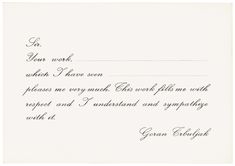 Sir,
Your work,
which I have seen
pleases me very much. This work fills me with
respect and I understand and sympathize
with it.
Goran Trbuljak